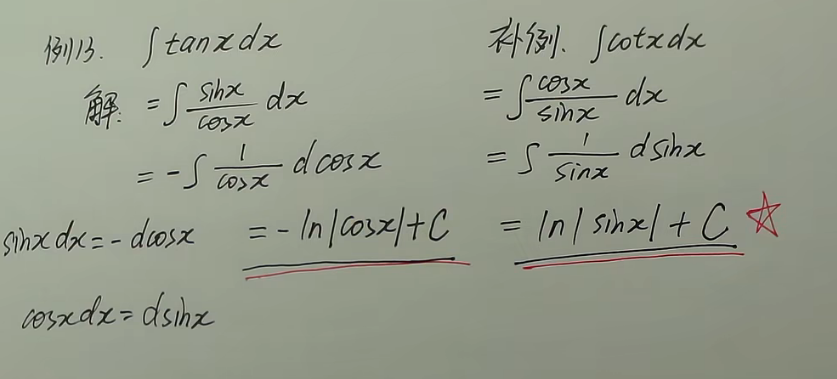 例13. ∫tanxdx
解: =∫ sinx/cosx dx
= -∫ 1/cosx dcosx
sinxdx=-dcosx = -ln|cosx|+C
cosxdx=dsinx
补例. ∫cotxdx
=∫ cosx/sinx dx
=∫ 1/sinx dsinx
= ln|sinx|+C